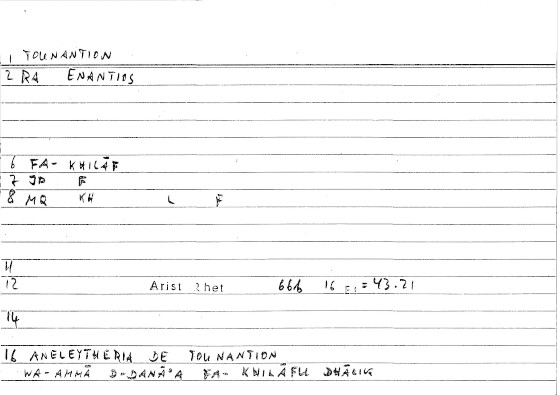 1 TOUNANTION
2 RA ENANTIOS
6 FA- KHILĀF
7 JP F
8 MQ KH L F
11
12 Arist Rhet 66b 16 = 43.21
14
16 ANELEYTHERIA DE TOUNANTION
WA-AMMĀ D-DANĀ'A FA- KHILĀFU DHĀLIK